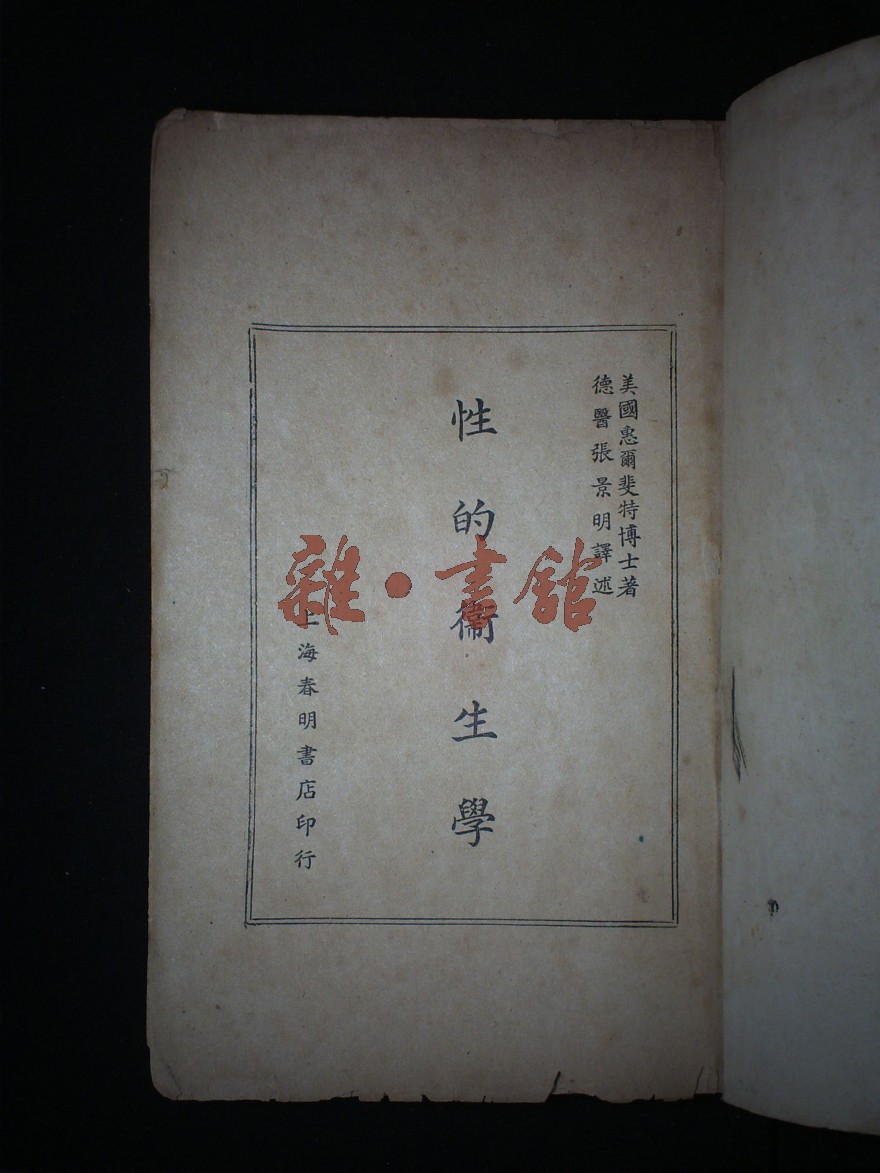 美國惠爾斐特博士著
德醫張景明譯述
性的衞生學
上海春明書店印行
雜·書館